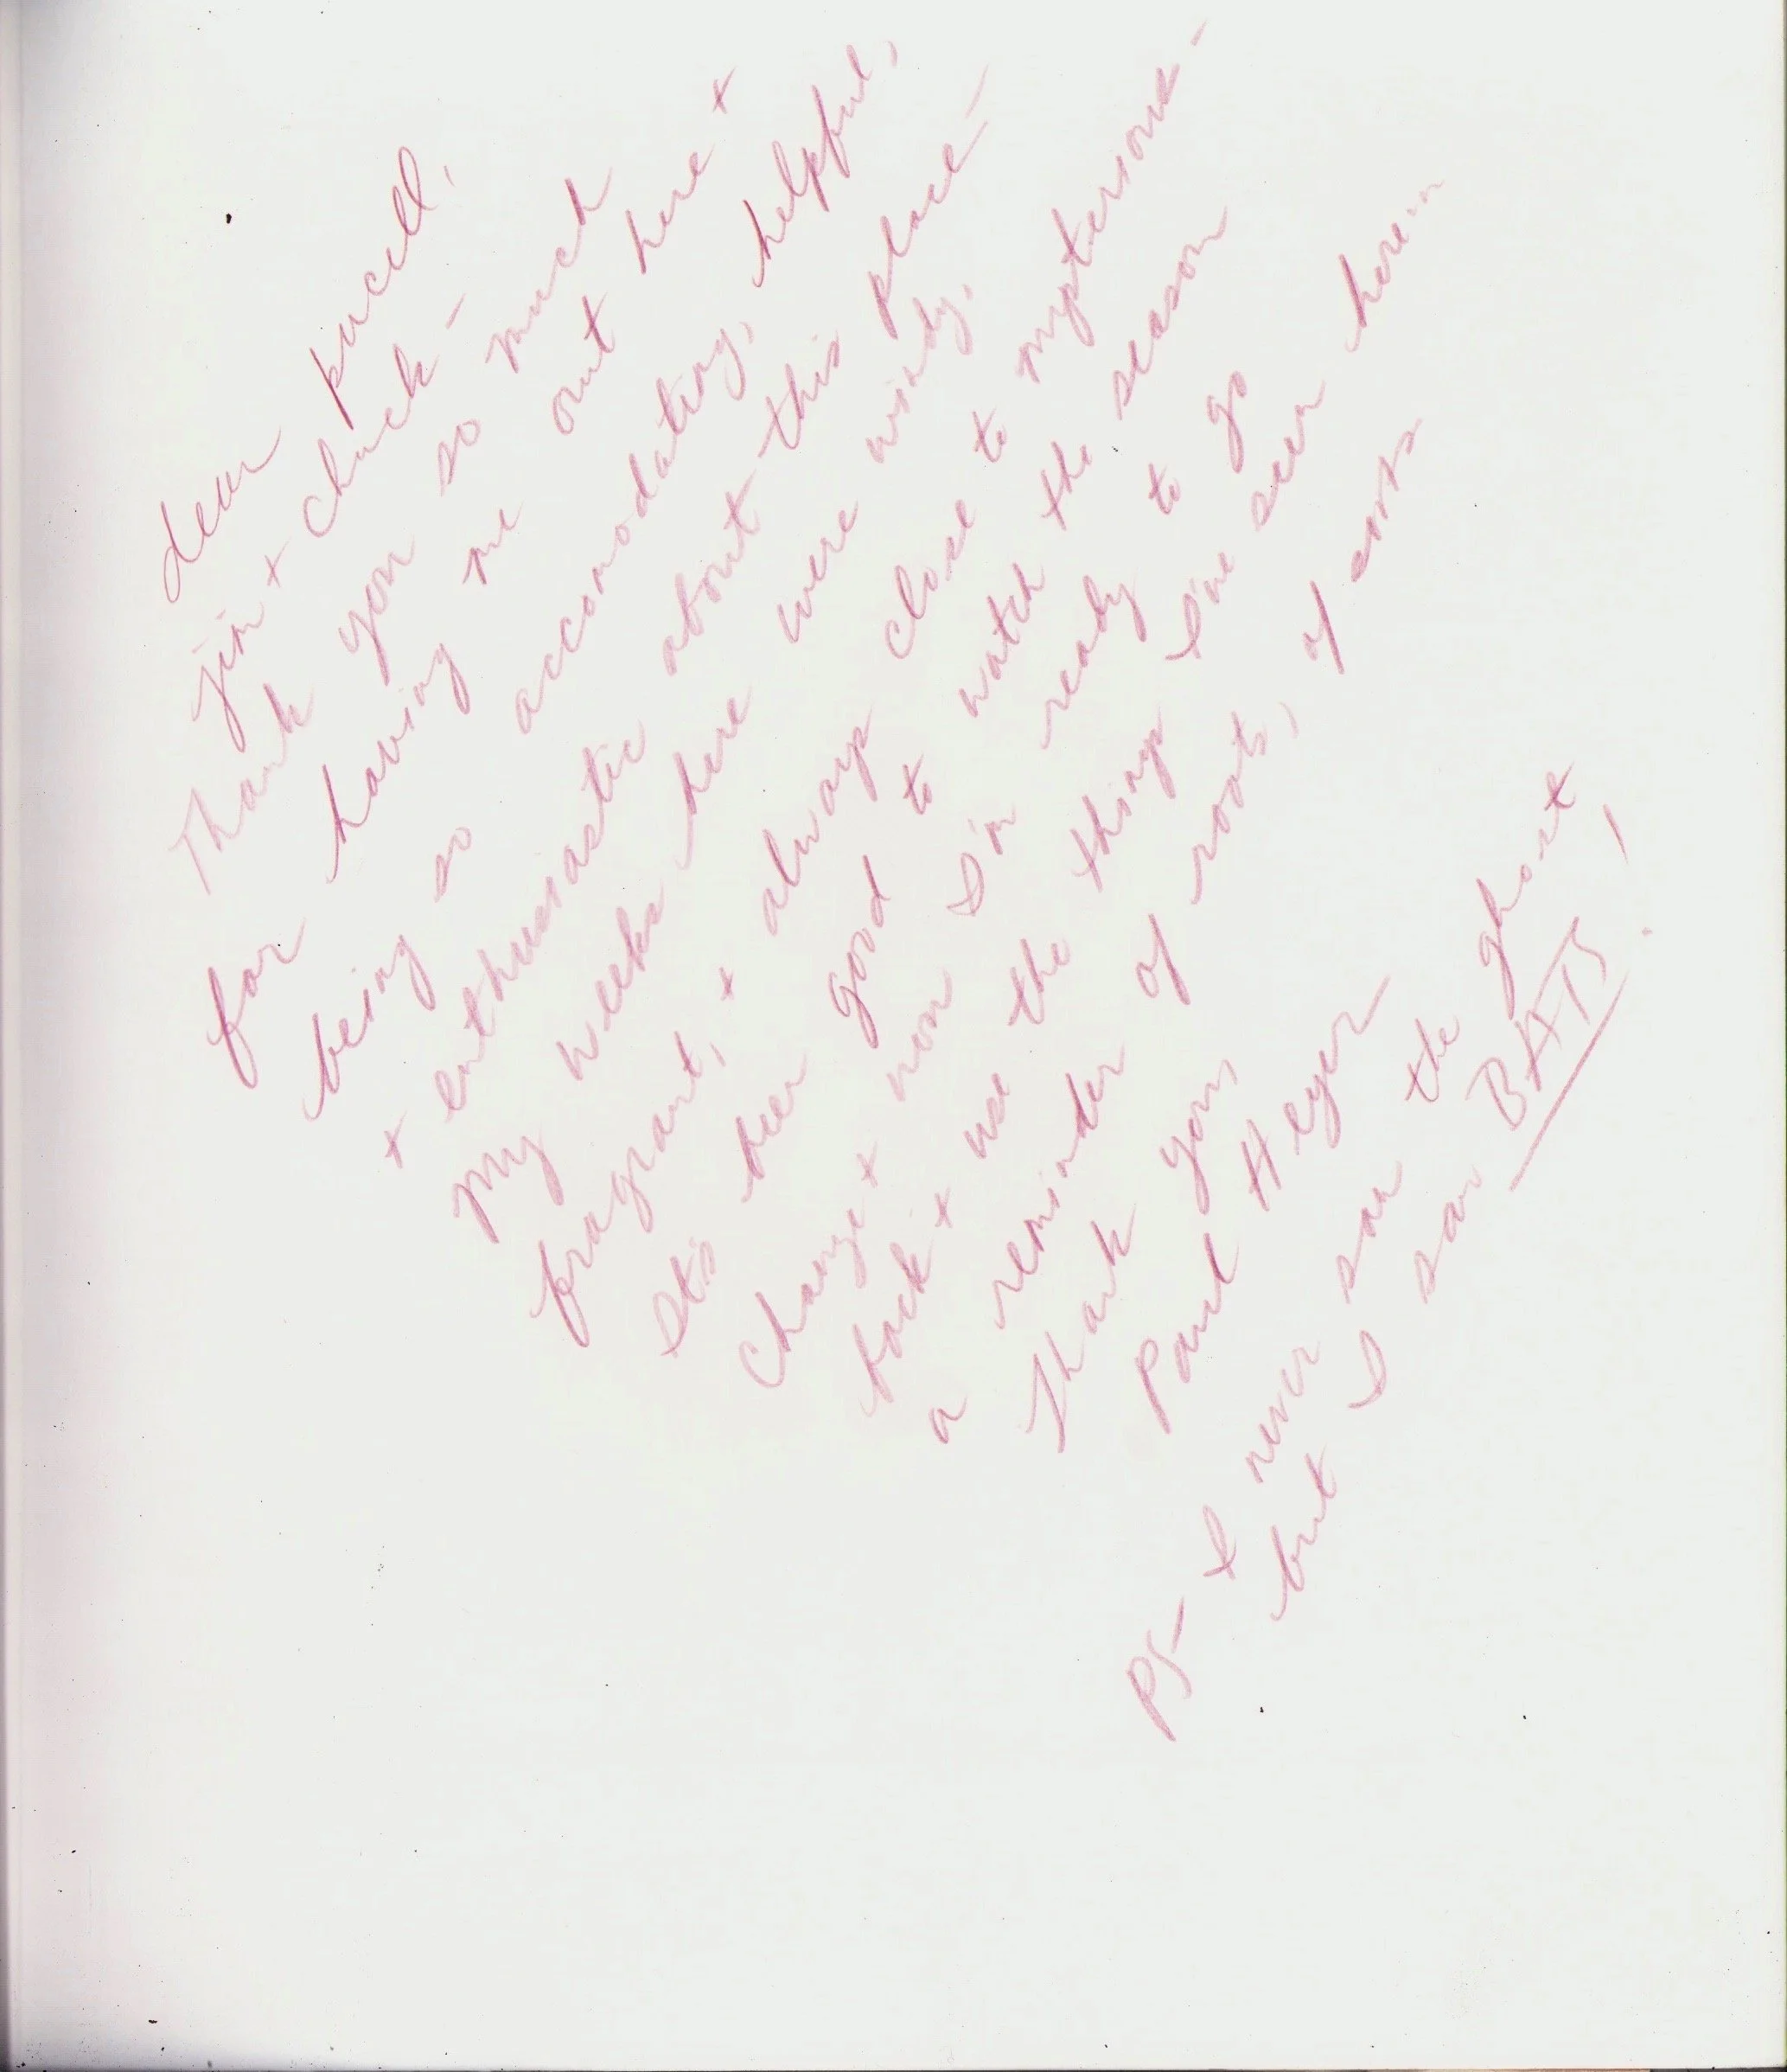 dear purcell,
jim + chuck -
Thank you so much
for having me out here +
being so accomodating, helpful,
+ enthusiastic about this place -
My weeks here were windy,
fragrant, + always close to mysterious -
It's been good to watch the season
change + now I'm ready to go
back + use the things I've seen here...
a reminder of roots, of
Thank you,
Paul Heyer
PS - I never saw the ghost
but I saw BATS!